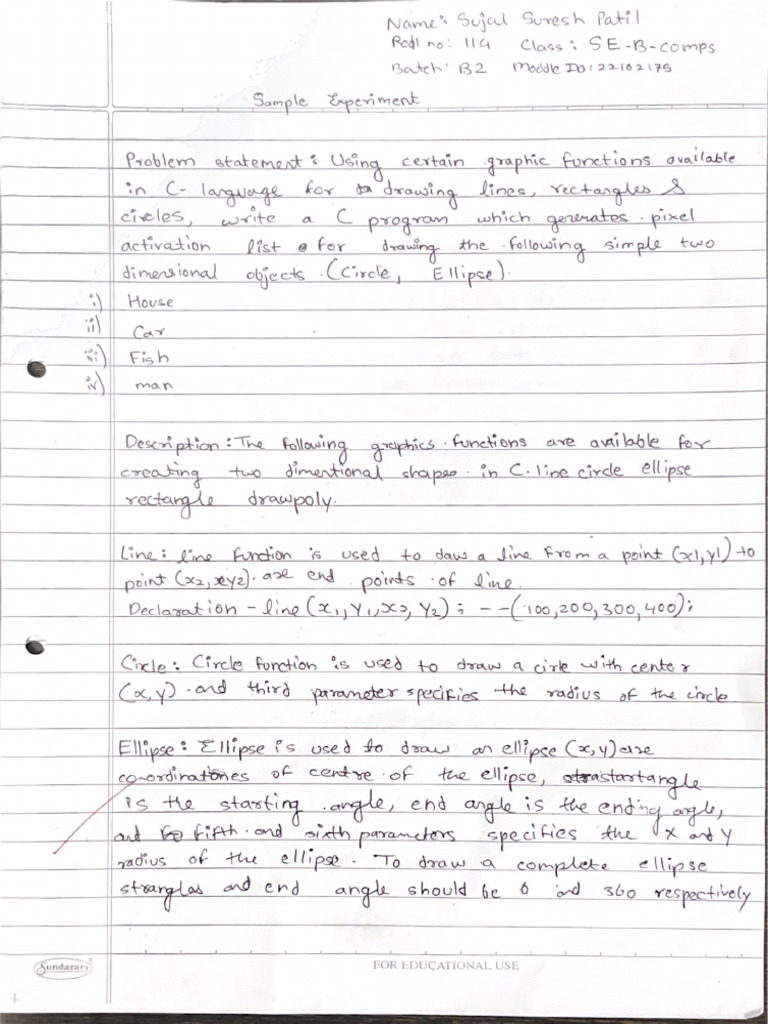 Name: Sujal Suresh Patil
Roll no: 114 Class: SE-B-comps
Batch: B2 Moodle ID: 22102175
Sample Experiment
Problem statement: Using certain graphic functions available
in C- language for drawing lines, rectangles &
circles, write a C program which generates pixel
activation list for drawing the following simple two
dimensional objects. (Circle, Ellipse).
i) House
ii) Car
iii) Fish
iv) man
Description: The following graphics functions are available for
creating two dimentional shapes in C. line circle ellipse
rectangle drawpoly.
Line: line function is used to daw a line from a point (x1,y1) to
point (x2,y2). are end points of line.
Declaration - line (x1, Y1, x2, Y2); --(100,200,300,400);
Circle: Circle function is used to draw a cirle with center
(x,y) and third parameter specifies the radius of the circle
Ellipse: Ellipse is used to draw an ellipse (x,y) are
co-ordinates of centre of the ellipse, startangle
is the starting angle, end angle is the ending angle,
and fifth and sixth parameters specifies the X and Y
radius of the ellipse. To draw a complete ellipse
strangles and end angle should be 0 and 360 respectively
Sundaram
FOR EDUCATIONAL USE